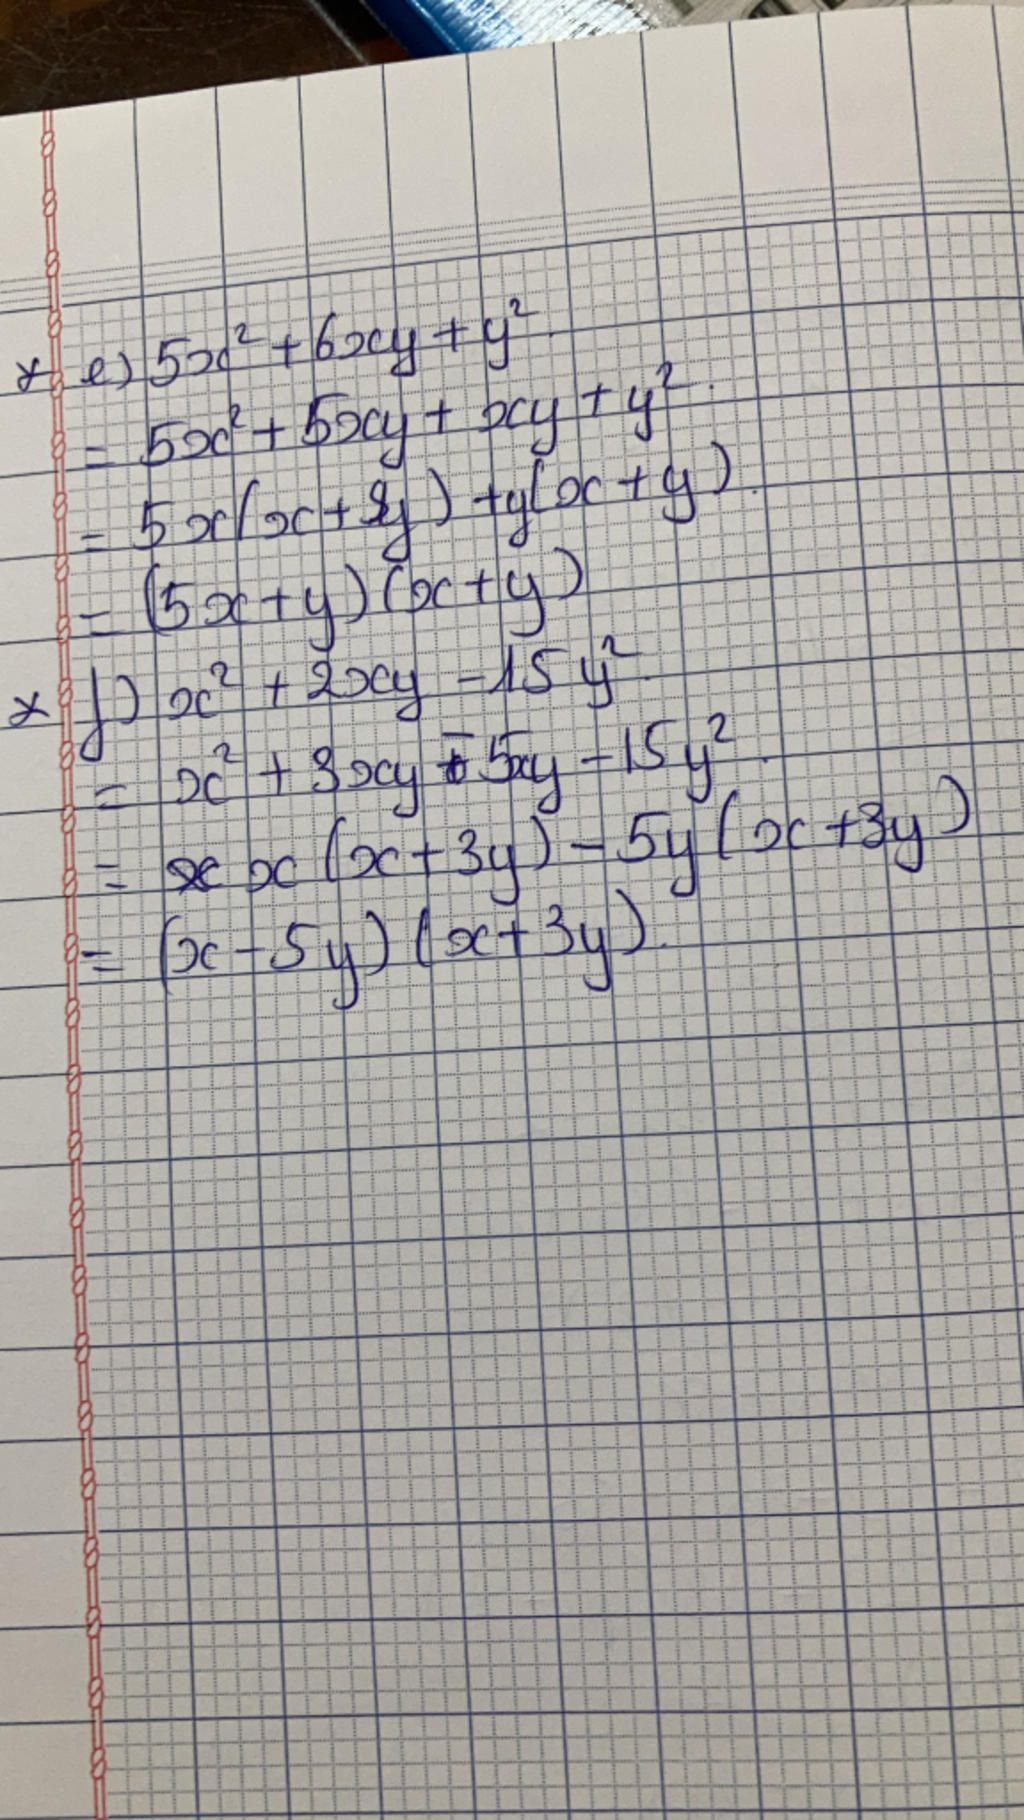 * e) 5x² + 6xy + y²
= 5x² + 5xy + xy + y².
= 5x(x + y) + y(x + y).
= (5x + y)(x + y)
* f) x² + 2xy - 15y²
= x² + 3xy - 5xy - 15y²
= x x (x + 3y) - 5y(x + 3y)
= (x - 5y)(x + 3y).